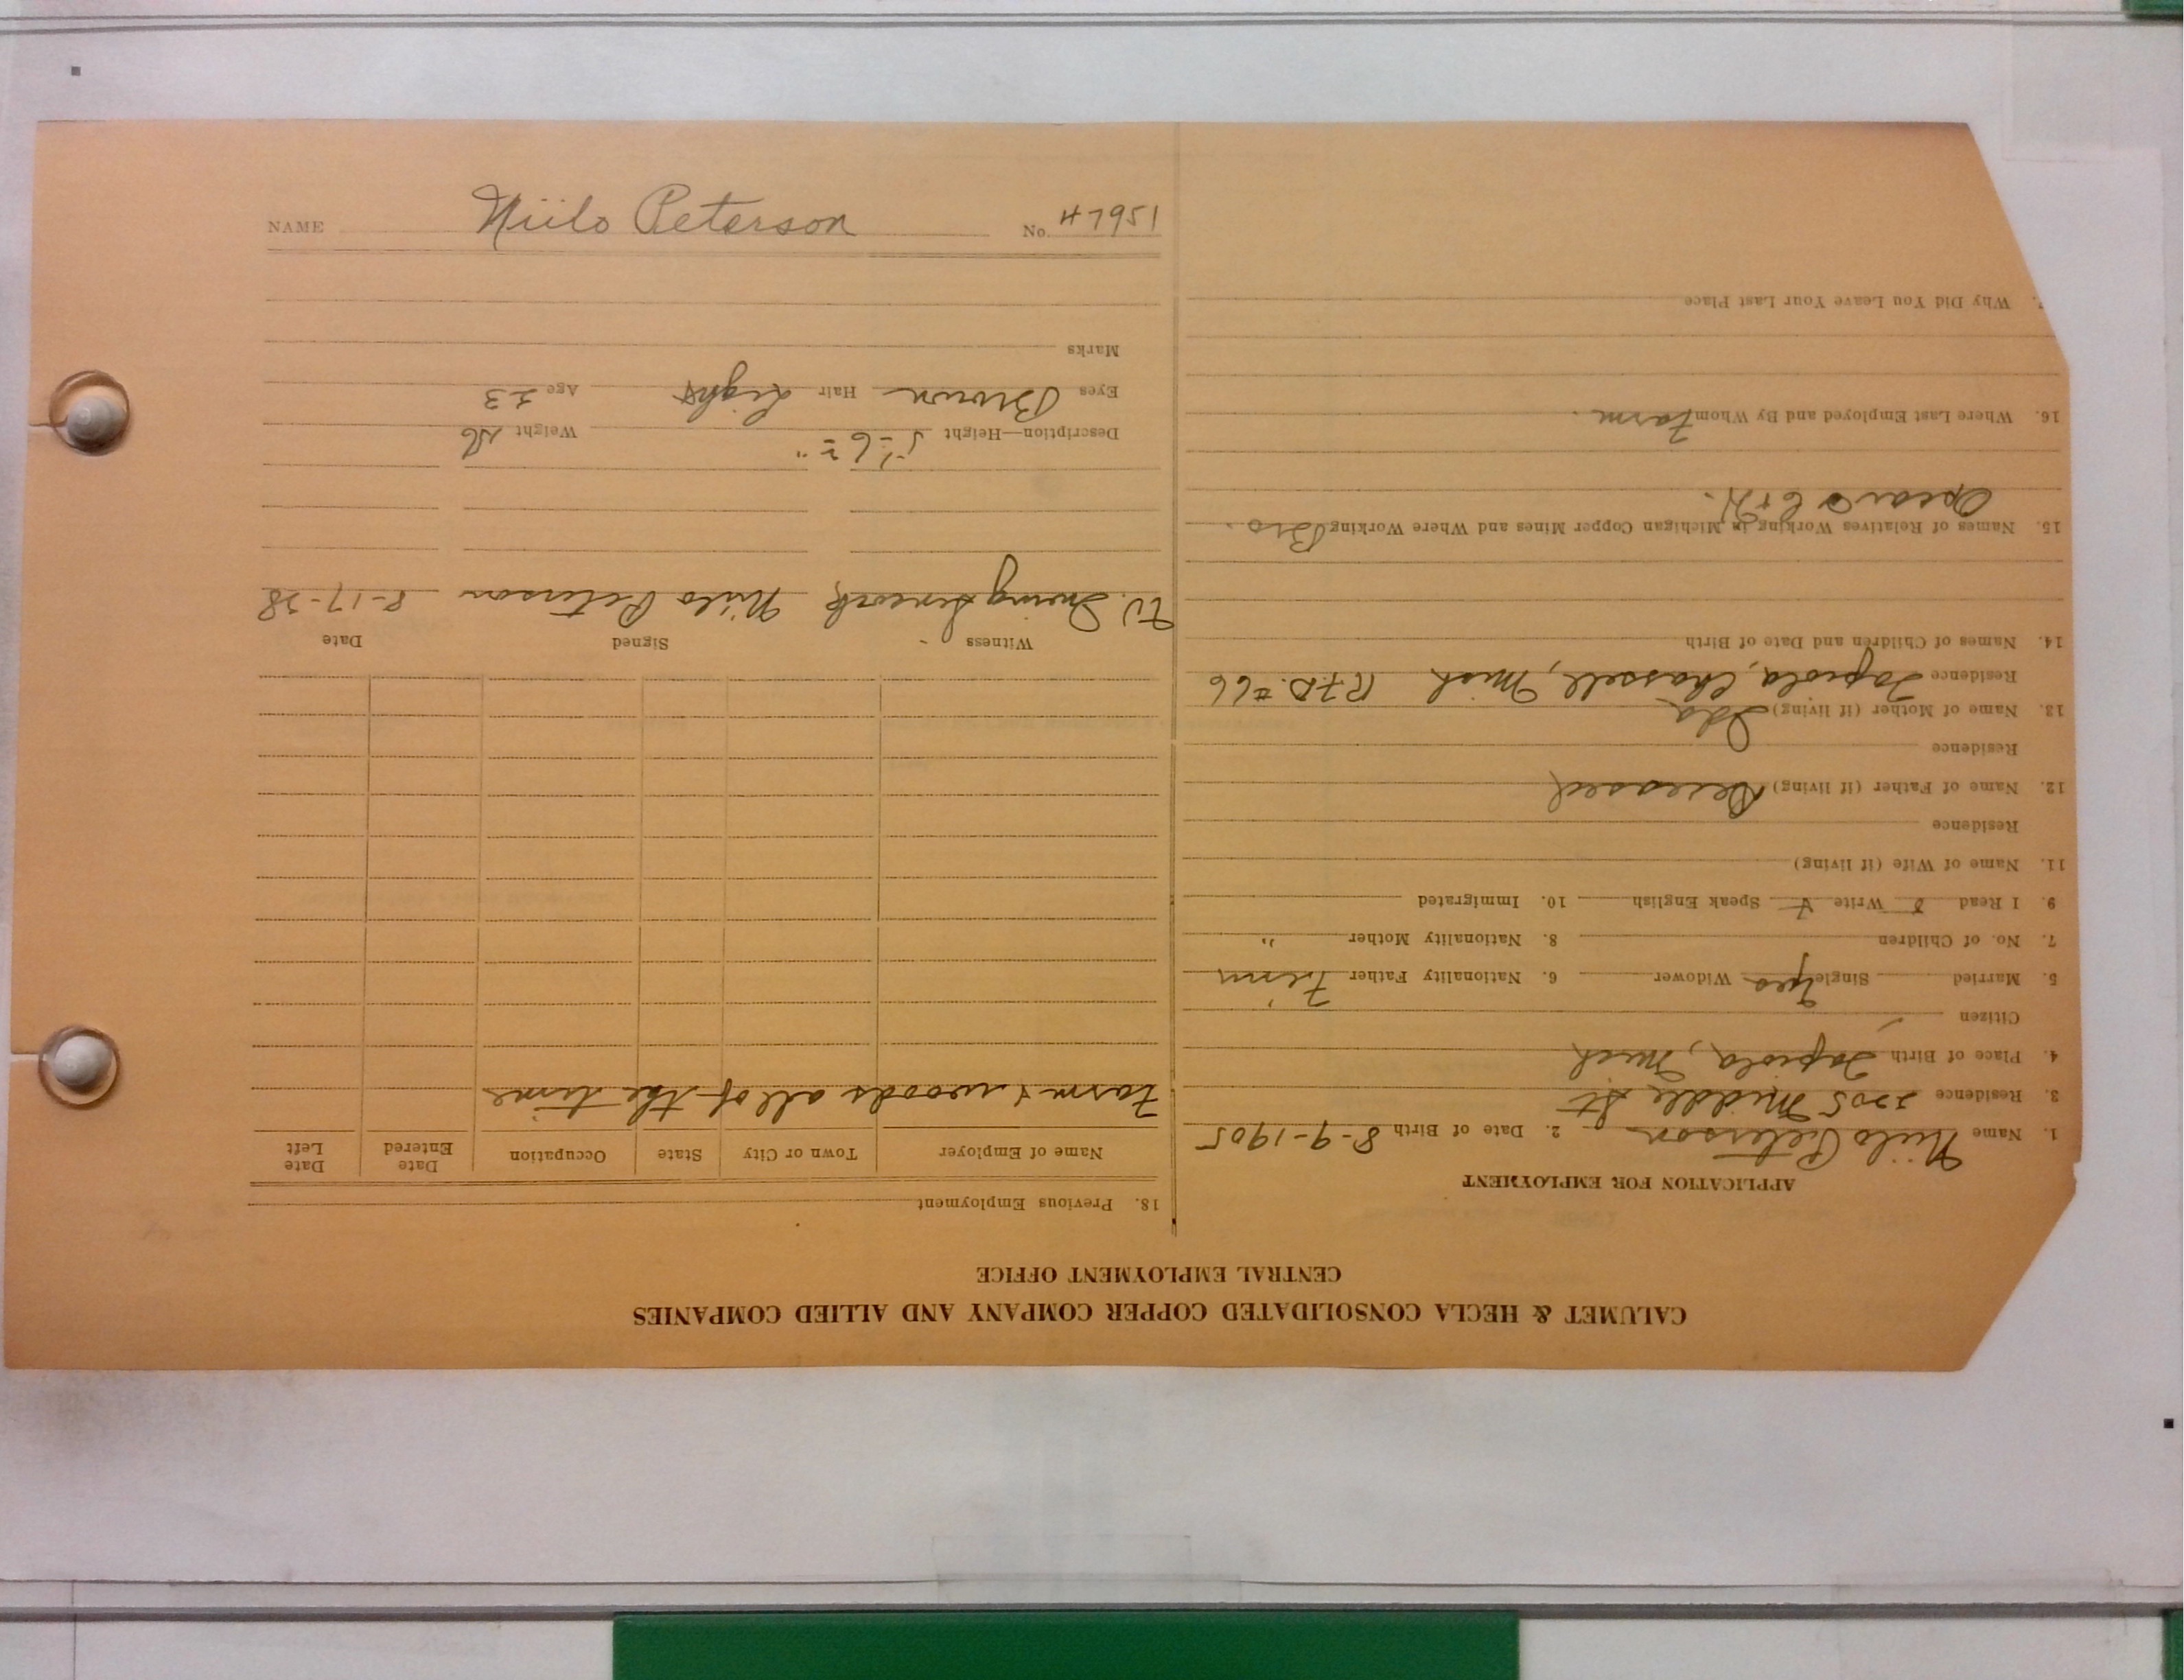 NAME Niilo Peterson No. 47951
CALUMET & HECLA CONSOLIDATED COPPER COMPANY AND ALLIED COMPANIES
CENTRAL EMPLOYMENT OFFICE
APPLICATION FOR EMPLOYMENT
1. Name Niilo Peterson 2. Date of Birth 8-9-1905
3. Residence 2205 Middle St
4. Place of Birth Tapiola, Mich
Citizen
5. Married Single Yes Widower 6. Nationality Father Finn
7. No. of Children 8. Nationality Mother "
9. I Read Write Speak English 10. Immigrated
11. Name of Wife (if living)
Residence
12. Name of Father (if living) Deceased
Residence
13. Name of Mother (if living) Ida
Residence Tapiola, Chassell, Mich R.F.D. #66
14. Names of Children and Date of Birth
15. Names of Relatives Working in Michigan Copper Mines and Where Working Bro.
Oscar C & H.
16. Where Last Employed and By Whom Farm.
Why Did You Leave Your Last Place
18. Previous Employment
Name of Employer Town or City State Occupation Date Entered Date Left
Farm & woods all of the time
Witness Signed Date
W. Irving Niilo Peterson 8-17-28
Description—Height 5'-6 Weight
Eyes Brown Hair Light Age 23
Marks